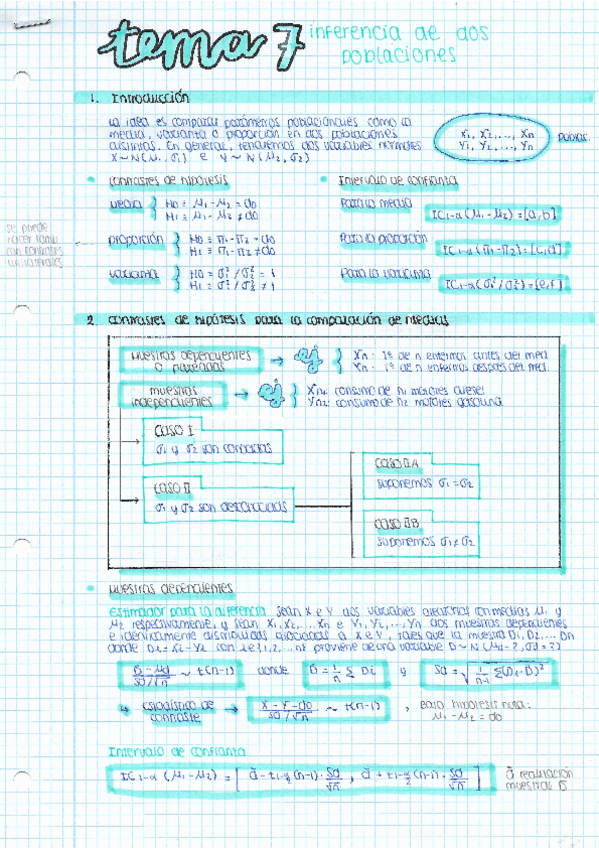 tema 7 inferencia de dos
poblaciones
1. Introducción
La idea es comparar parámetros poblacionales como la
media, varianza o proporción en dos poblaciones
distintas. En general, tendremos dos variables normales
X ~ N(μ₁, σ₁) e Y ~ N(μ₂, σ₂)
X₁, X₂, ..., Xn
Y₁, Y₂, ..., Yn
poblac.
• Contrastes de hipótesis
media } H₀ ≡ μ₁ - μ₂ = d₀
H₁ ≡ μ₁ - μ₂ ≠ d₀
proporción } H₀ ≡ π₁ - π₂ = d₀
H₁ ≡ π₁ - π₂ ≠ d₀
varianza } H₀ ≡ σ₁² / σ₂² = 1
H₁ ≡ σ₁² / σ₂² ≠ 1
se puede
hacer también
con contrastes
unilaterales
• Intervalo de confianza
Para la media
IC₁₋α (μ₁ - μ₂) = [a, b]
Para la proporción
IC₁₋α (π₁ - π₂) = [c, d]
Para la varianza
IC₁₋α (σ₁² / σ₂²) = [e, f]
2. Contrastes de hipótesis para la comparación de medias
muestras dependientes
o pareadas
→ ej } Xn: tª de n enfermos antes del med.
Yn: tª de n enfermos después del med.
muestras
independientes
→ ej } Xn₁: consumo de n₁ motores diesel
Yn₂: consumo de n₂ motores gasolina
CASO I
σ₁ y σ₂ son conocidas
CASO II
σ₁ y σ₂ son desconocidas
CASO II A
suponemos σ₁ = σ₂
CASO II B
suponemos σ₁ ≠ σ₂
• Muestras dependientes
Estimador para la diferencia. Sean X e Y dos variables aleatorias con medias μ₁ y
μ₂ respectivamente, y sean X₁, X₂, ... Xn e Y₁, Y₂, ..., Yn dos muestras dependientes
e idénticamente distribuidas asociadas a X e Y, tales que la muestra D₁, D₂, ... Dn
donde Di = Xi - Yi con i ∈ {1, 2, ... n} proviene de una variable D ~ N (μd = ?, σd = ?)
D̄ - μd / Sd/√n ~ t(n-1) donde D̄ = 1/n Σ Di y Sd = √(1/(n-1) Σ(Di - D̄)²)
↳ estadístico de
contraste
→ X̄ - Ȳ - d₀ / Sd/√n ~ t(n-1), bajo hipótesis nula:
μ₁ - μ₂ = d₀
Intervalo de confianza
IC₁₋α (μ₁ - μ₂) = [ d̄ - t₁₋α/₂ (n-1) · Sd/√n , d̄ + t₁₋α/₂ (n-1) · Sd/√n ]
d̄ realización
muestral D̄